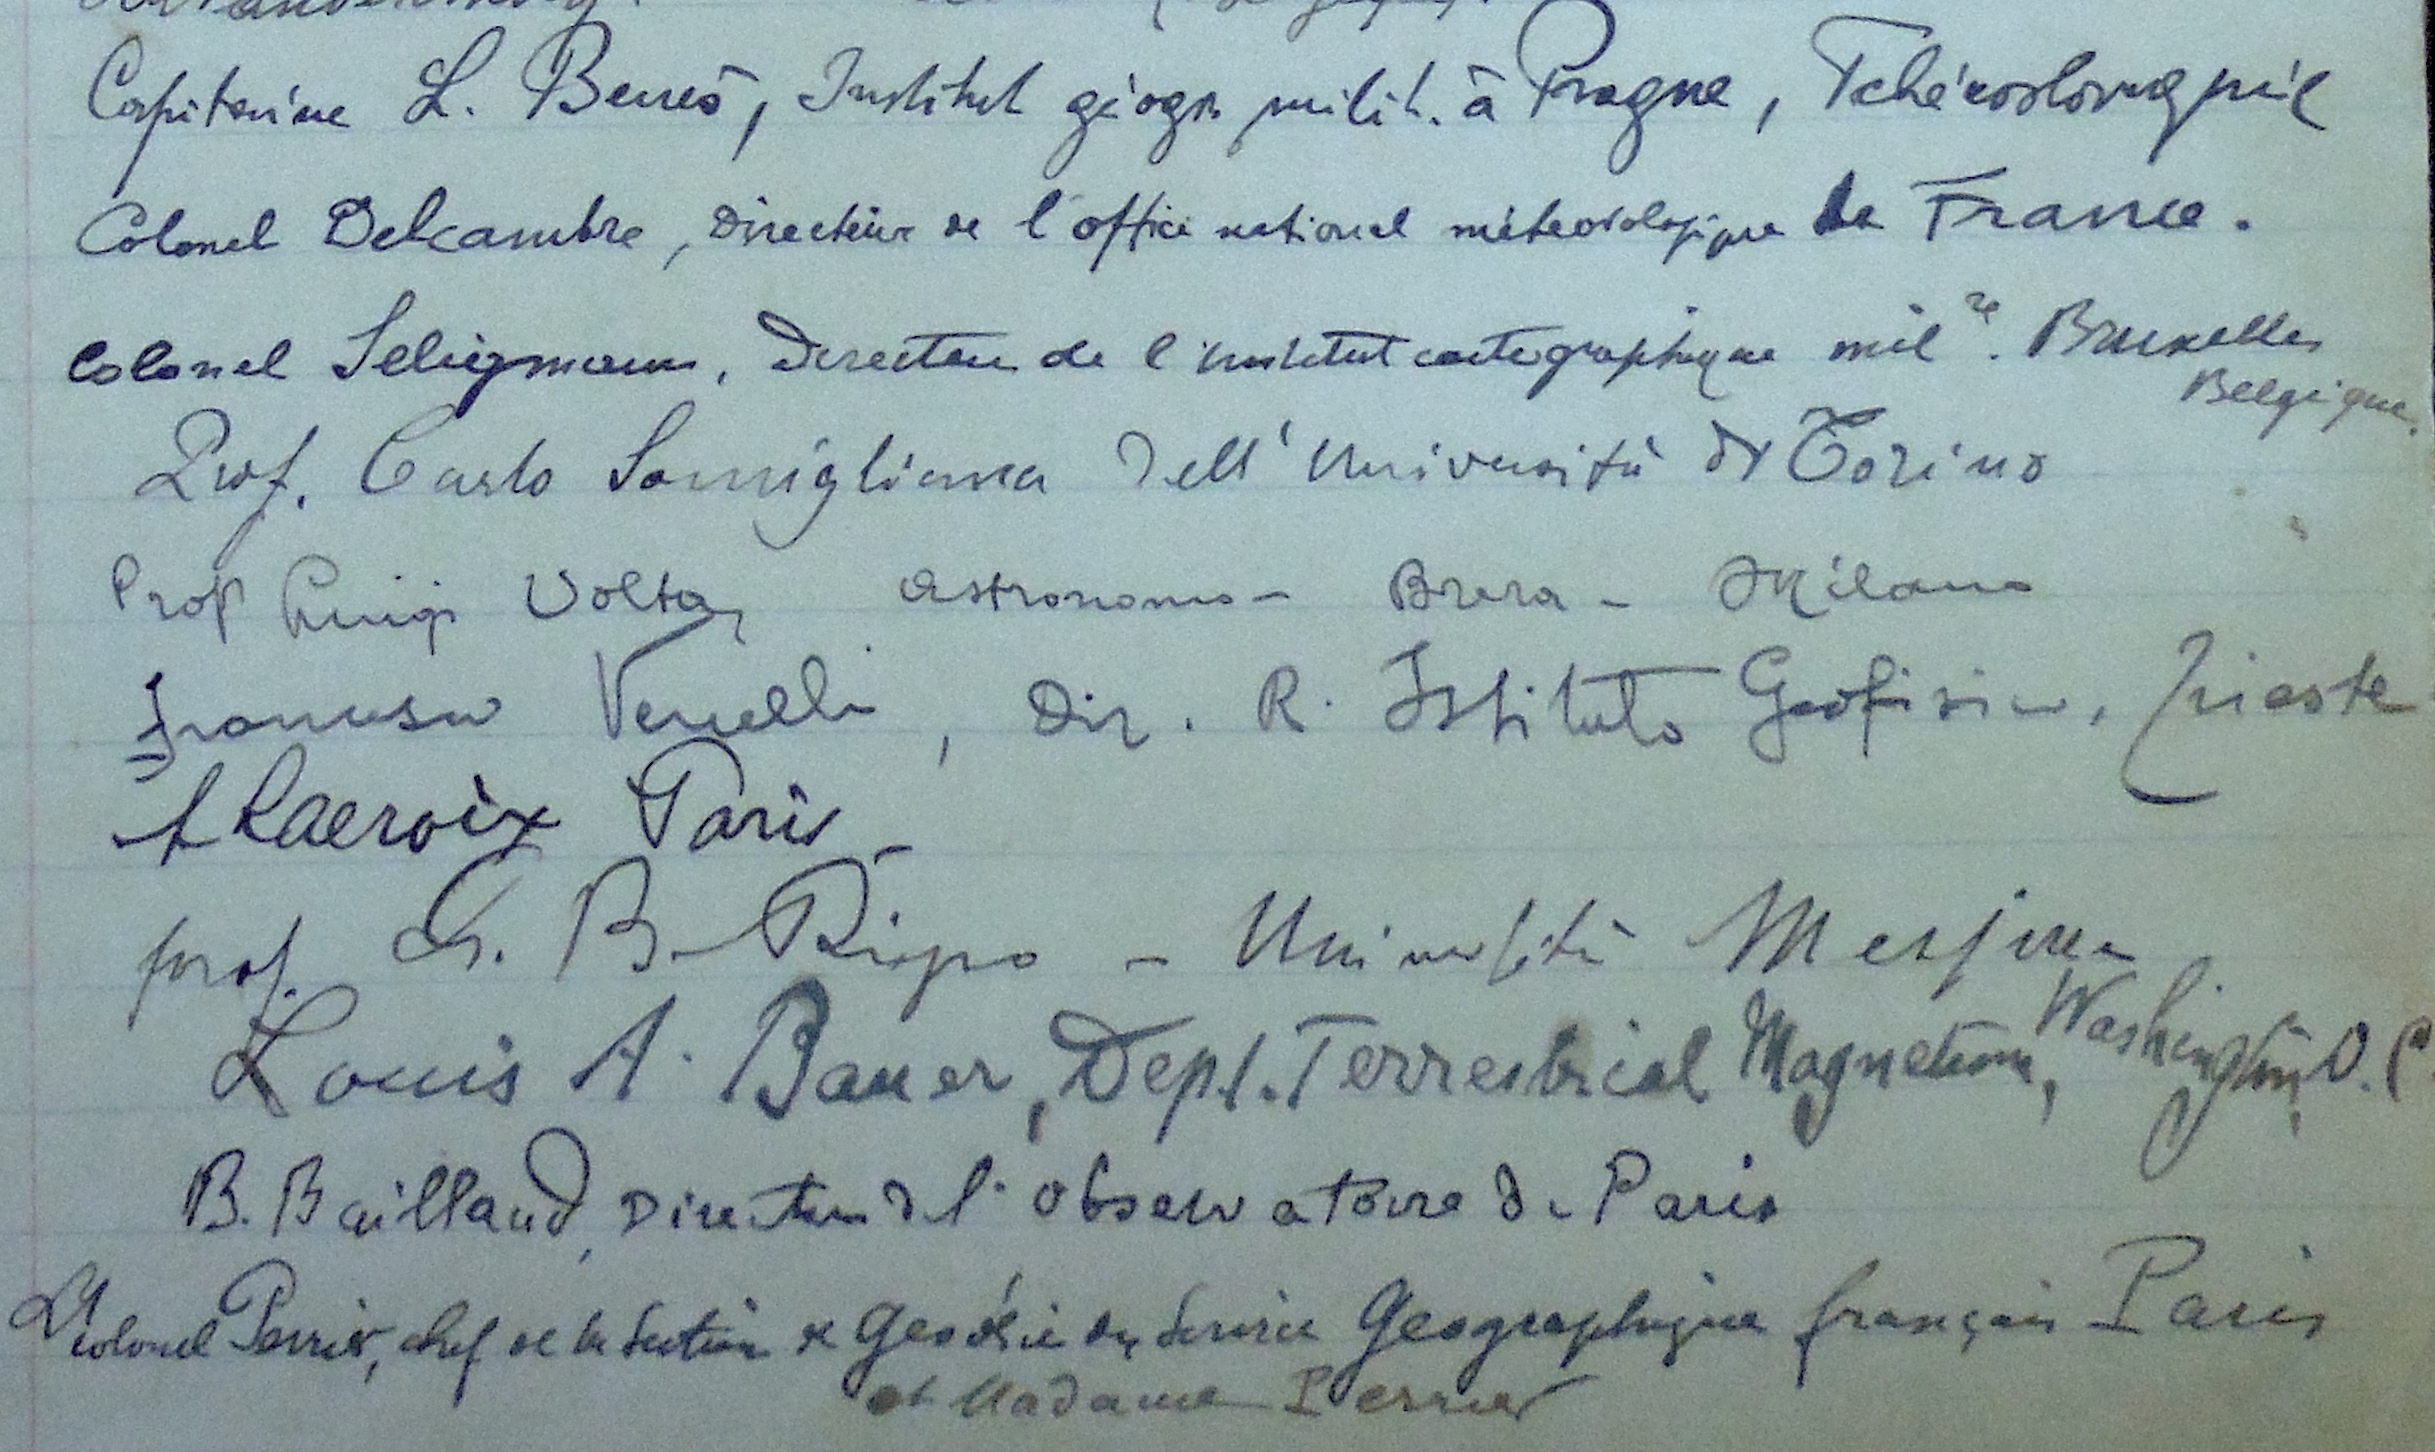 Capitaine L. Beneš, Institut géogr. milit. à Prague, Tchécoslovaquie
Colonel Delcambre, Directeur de l'office national météorologique de France.
Colonel Seligmann, Directeur de l'institut cartographique mil re. Bruxelles
Belgique.
Prof. Carlo Somigliana dell'Università di Torino
Prof Luigi Volta, astronomo - Brera - Milano
Francesco Vercelli, Dir. R. Istituto Geofisico, Trieste
A Lacroix Paris -
prof. G. B. Rizzo - Università Messina
Louis A. Bauer, Dept. Terrestrial Magnetism, Washington, D.C.
B. Baillaud, Directeur de l'observatoire de Paris
Lt Colonel Perrier, chef de la Section de Géodésie du Service Géographique français Paris
et Madame Perrier